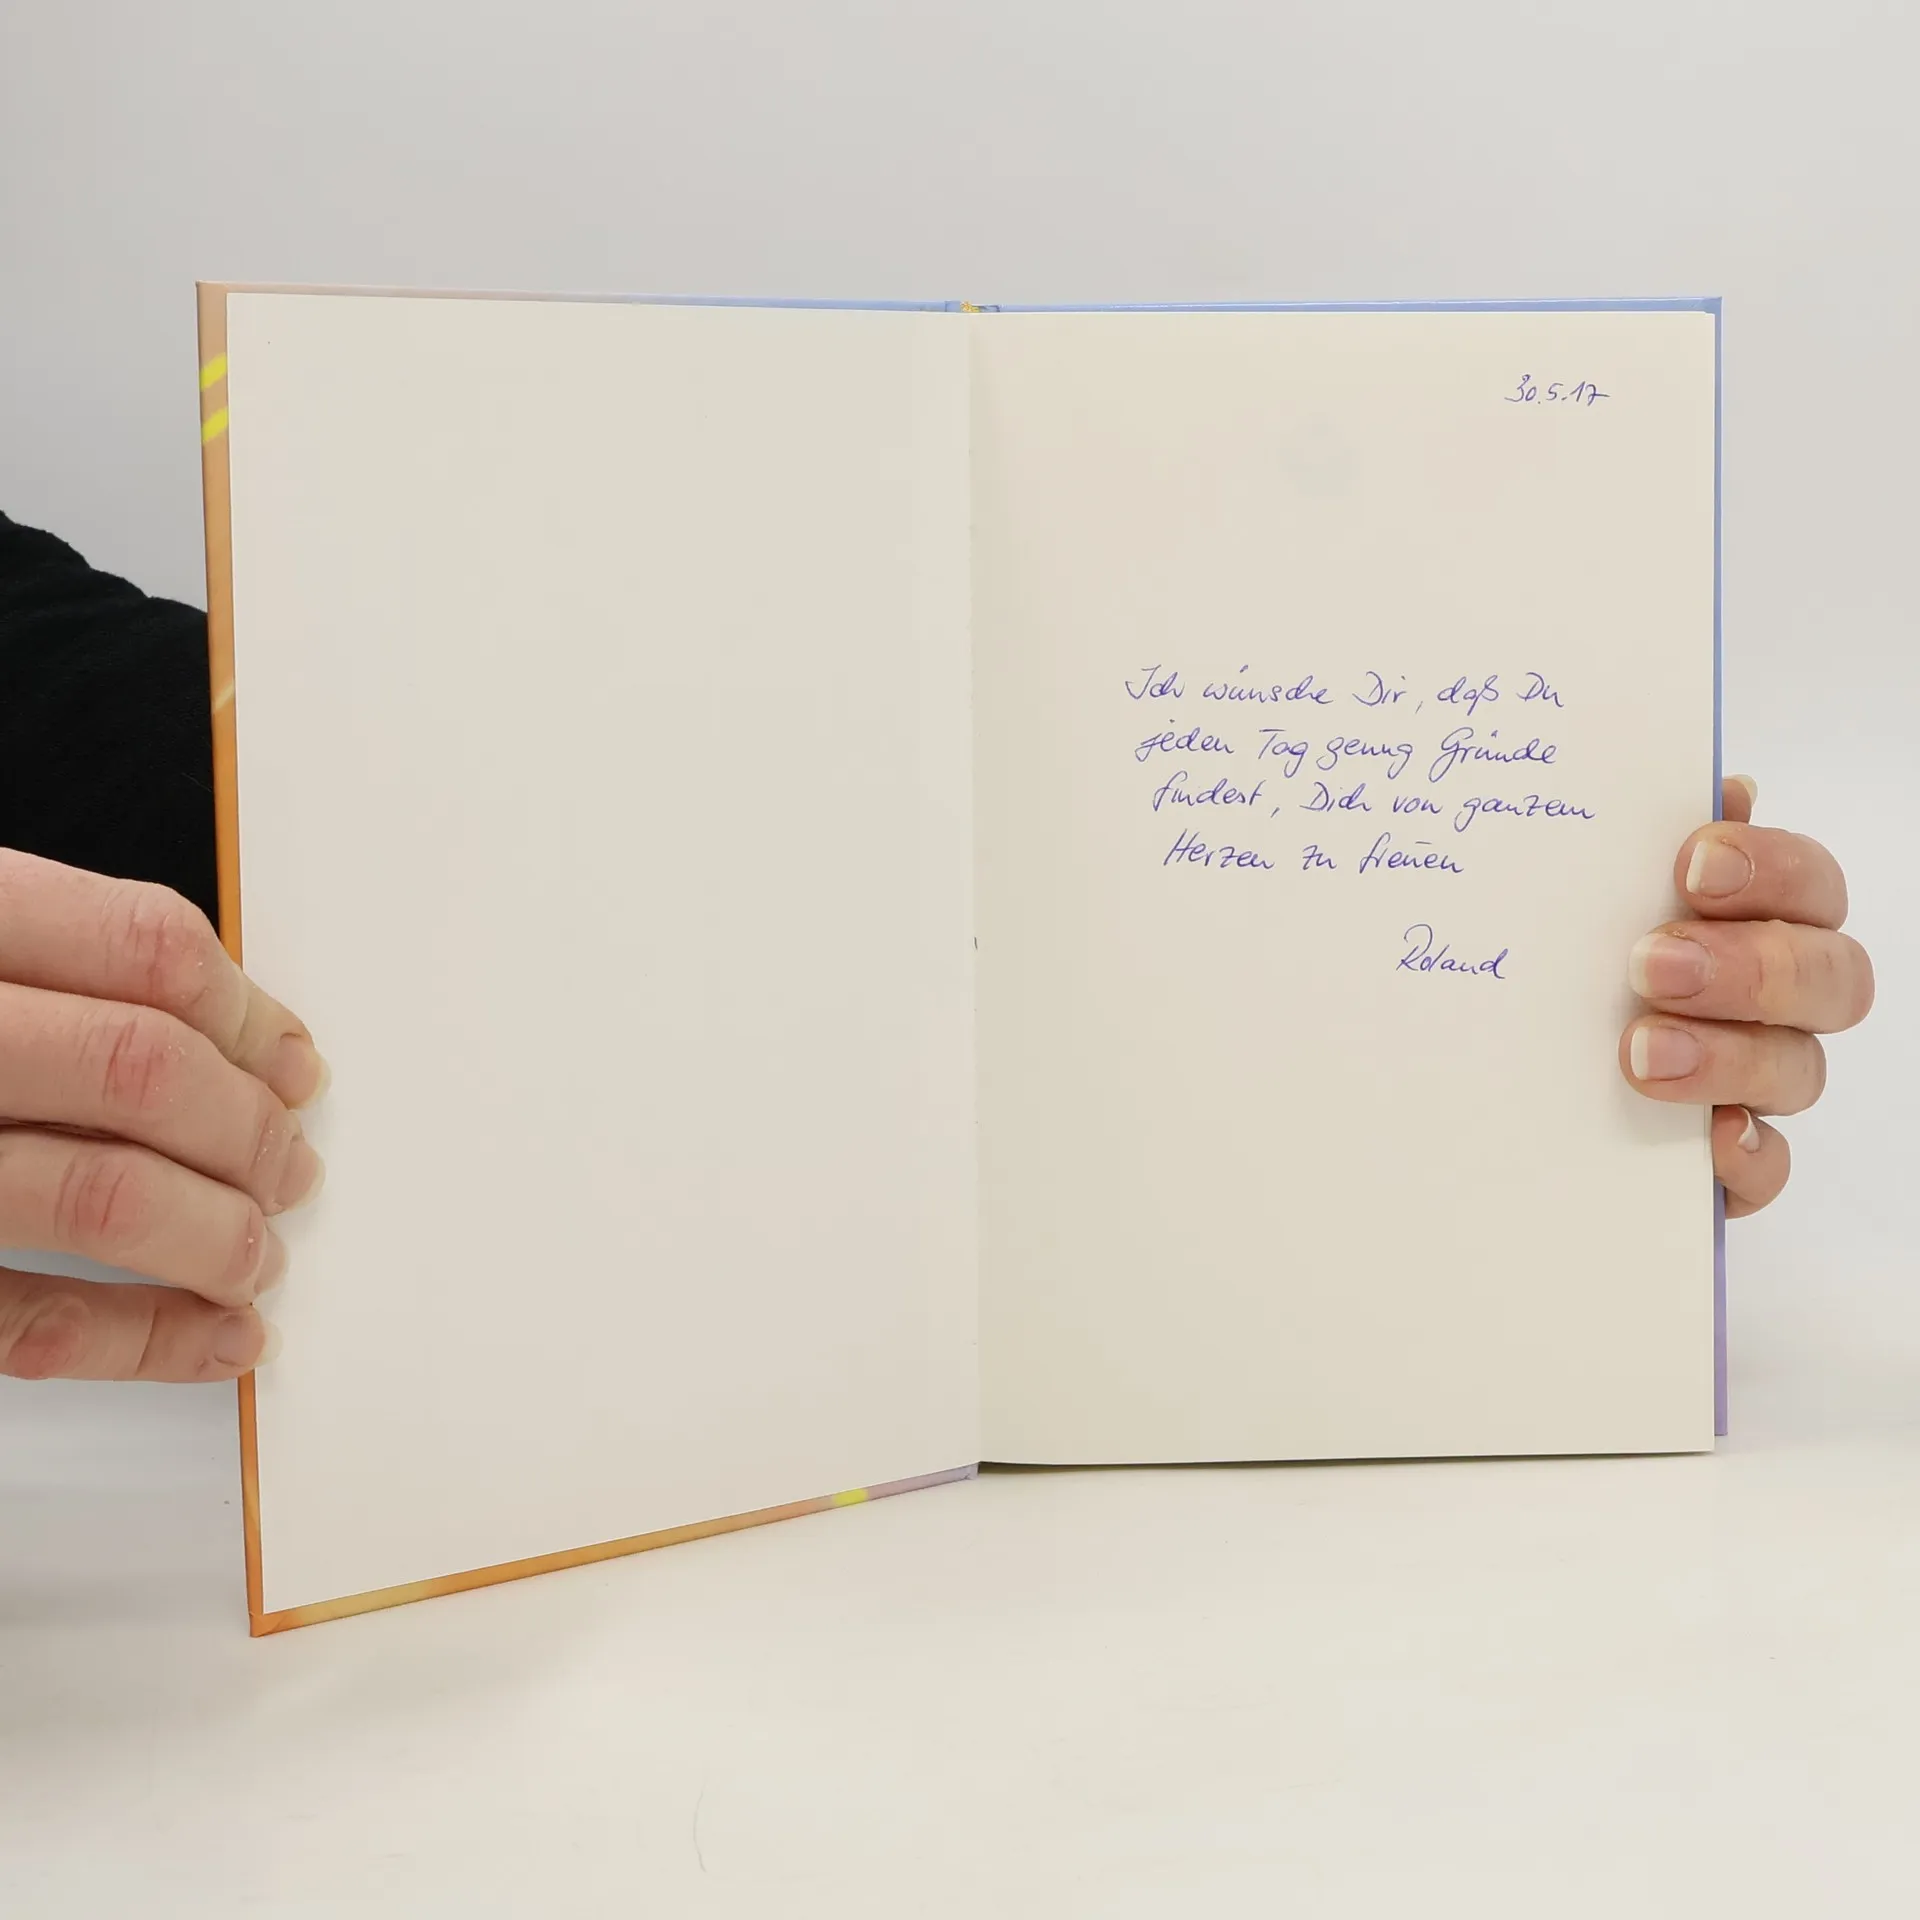 30.5.17
Ich wünsche Dir, daß Du
jeden Tag genug Gründe
findest, Dich von ganzem
Herzen zu freuen
Roland